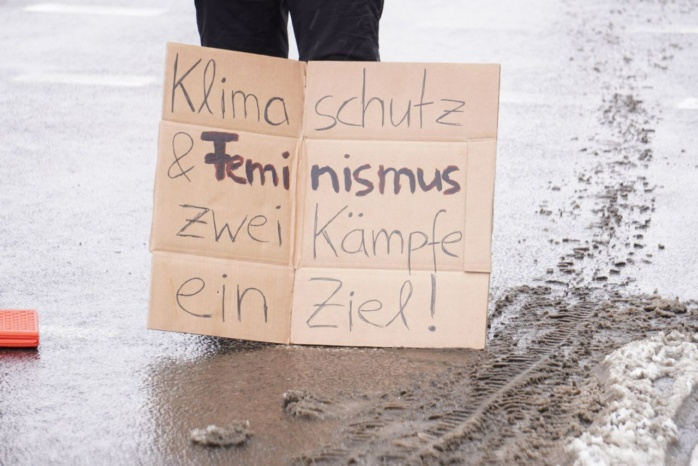 Klimaschutz
& Feminismus
zwei Kämpfe
ein Ziel!